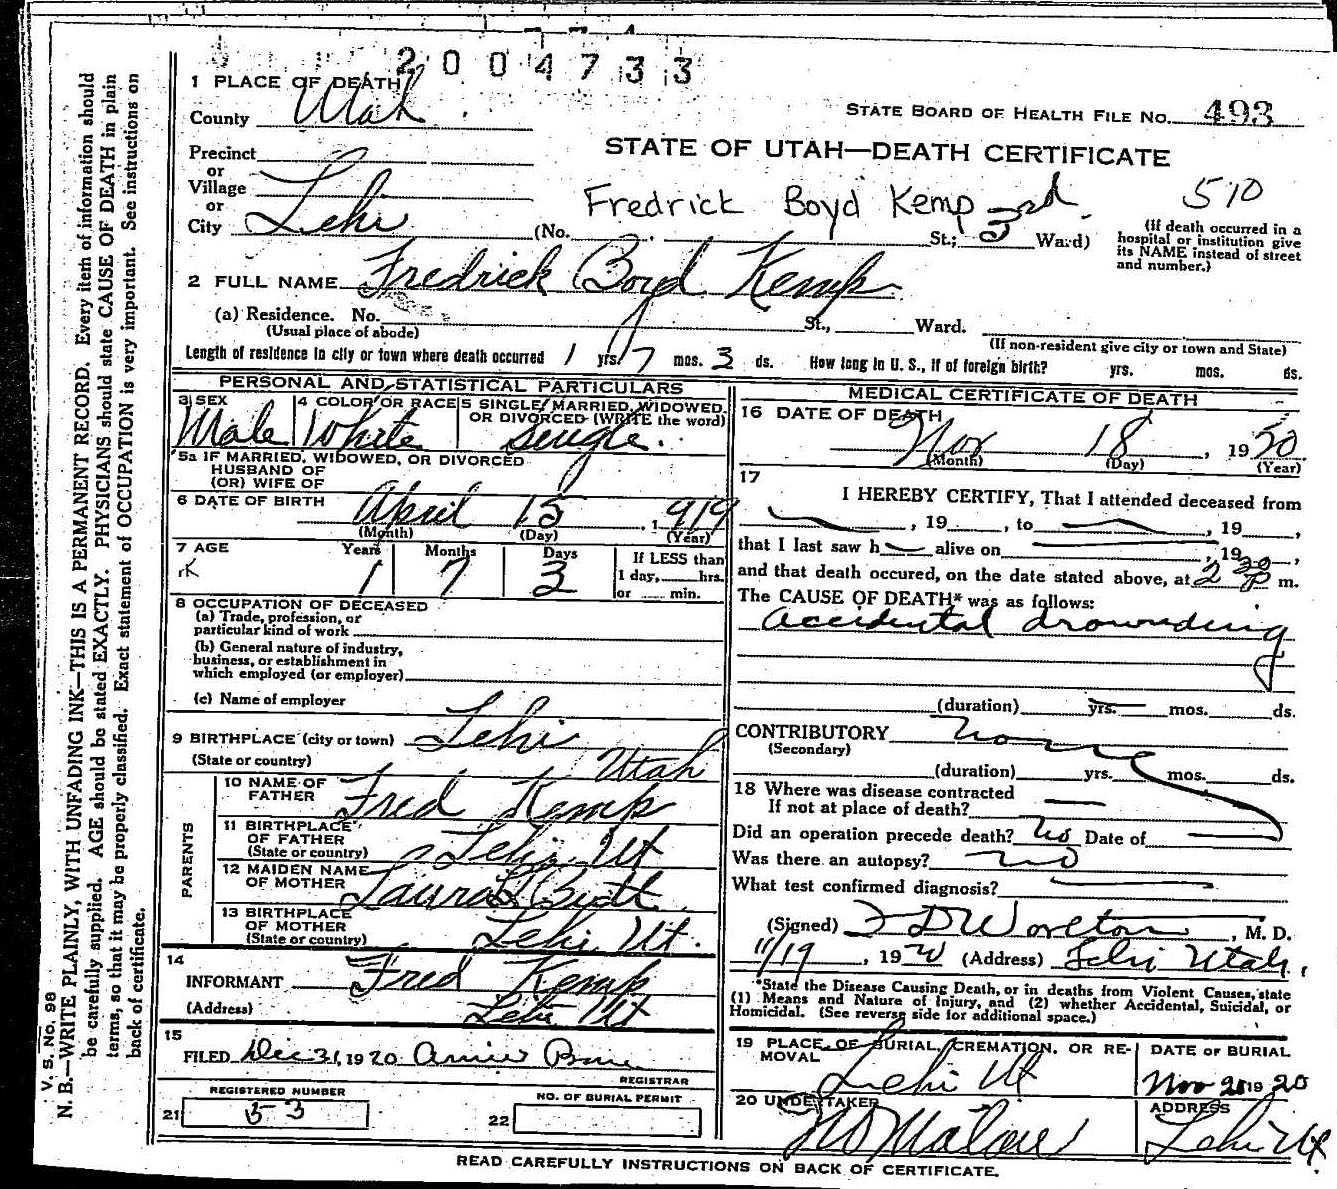 2004733
1 PLACE OF DEATH
County Utah
STATE BOARD OF HEALTH FILE No. 493
STATE OF UTAH—DEATH CERTIFICATE
Precinct
or
Village
or
City Lehi
Fredrick Boyd Kemp
510
(No. St.; 3rd Ward)
(If death occurred in a
hospital or institution give
its NAME instead of street
and number.)
2 FULL NAME Fredrick Boyd Kemp
(a) Residence. No. St., Ward.
(Usual place of abode)
(If non-resident give city or town and State)
Length of residence in city or town where death occurred 1 yrs. 7 mos. 3 ds. How long in U. S., if of foreign birth? yrs. mos. ds.
PERSONAL AND STATISTICAL PARTICULARS
3 SEX
Male
4 COLOR OR RACE
White
5 SINGLE, MARRIED, WIDOWED,
OR DIVORCED (WRITE the word)
single.
5a IF MARRIED, WIDOWED, OR DIVORCED
HUSBAND OF
(OR) WIFE OF
6 DATE OF BIRTH April 15, 1919
(Month) (Day) (Year)
7 AGE
Years Months Days
1 7 3
If LESS than
1 day, hrs.
or min.
8 OCCUPATION OF DECEASED
(a) Trade, profession, or
particular kind of work
(b) General nature of industry,
business, or establishment in
which employed (or employer)
(c) Name of employer
9 BIRTHPLACE (city or town) Lehi
(State or country) Utah
PARENTS
10 NAME OF
FATHER Fred Kemp
11 BIRTHPLACE
OF FATHER
(State or country) Lehi Ut
12 MAIDEN NAME
OF MOTHER Laura
13 BIRTHPLACE
OF MOTHER
(State or country) Lehi Ut.
14
INFORMANT Fred Kemp
(Address) Lehi Ut
15
FILED Dec 31, 1920
REGISTRAR
REGISTERED NUMBER
21 53
NO. OF BURIAL PERMIT
22
MEDICAL CERTIFICATE OF DEATH
16 DATE OF DEATH
Nov 18, 1920
(Month) (Day) (Year)
17
I HEREBY CERTIFY, That I attended deceased from
, 19 , to , 19 ,
that I last saw h alive on , 19 ,
and that death occured, on the date stated above, at 2 30 p m.
The CAUSE OF DEATH* was as follows:
accidental drownding
(duration) yrs. mos. ds.
CONTRIBUTORY none
(Secondary)
(duration) yrs. mos. ds.
18 Where was disease contracted
If not at place of death?
Did an operation precede death? no Date of
Was there an autopsy? no
What test confirmed diagnosis?
(Signed) F D Worlton, M. D.
11/19, 1920 (Address) Lehi Utah,
*State the Disease Causing Death, or in deaths from Violent Causes, state
(1) Means and Nature of Injury, and (2) whether Accidental, Suicidal, or
Homicidal. (See reverse side for additional space.)
19 PLACE OF BURIAL, CREMATION, OR RE-
MOVAL
Lehi Ut
DATE OF BURIAL
Nov 21 1920
20 UNDERTAKER
ADDRESS
Lehi Ut
READ CAREFULLY INSTRUCTIONS ON BACK OF CERTIFICATE.
V. S. No. 98
N. B.—WRITE PLAINLY, WITH UNFADING INK—THIS IS A PERMANENT RECORD. Every item of information should
be carefully supplied. AGE should be stated EXACTLY. PHYSICIANS should state CAUSE OF DEATH in plain
terms, so that it may be properly classified. Exact statement of OCCUPATION is very important. See instructions on
back of certificate.